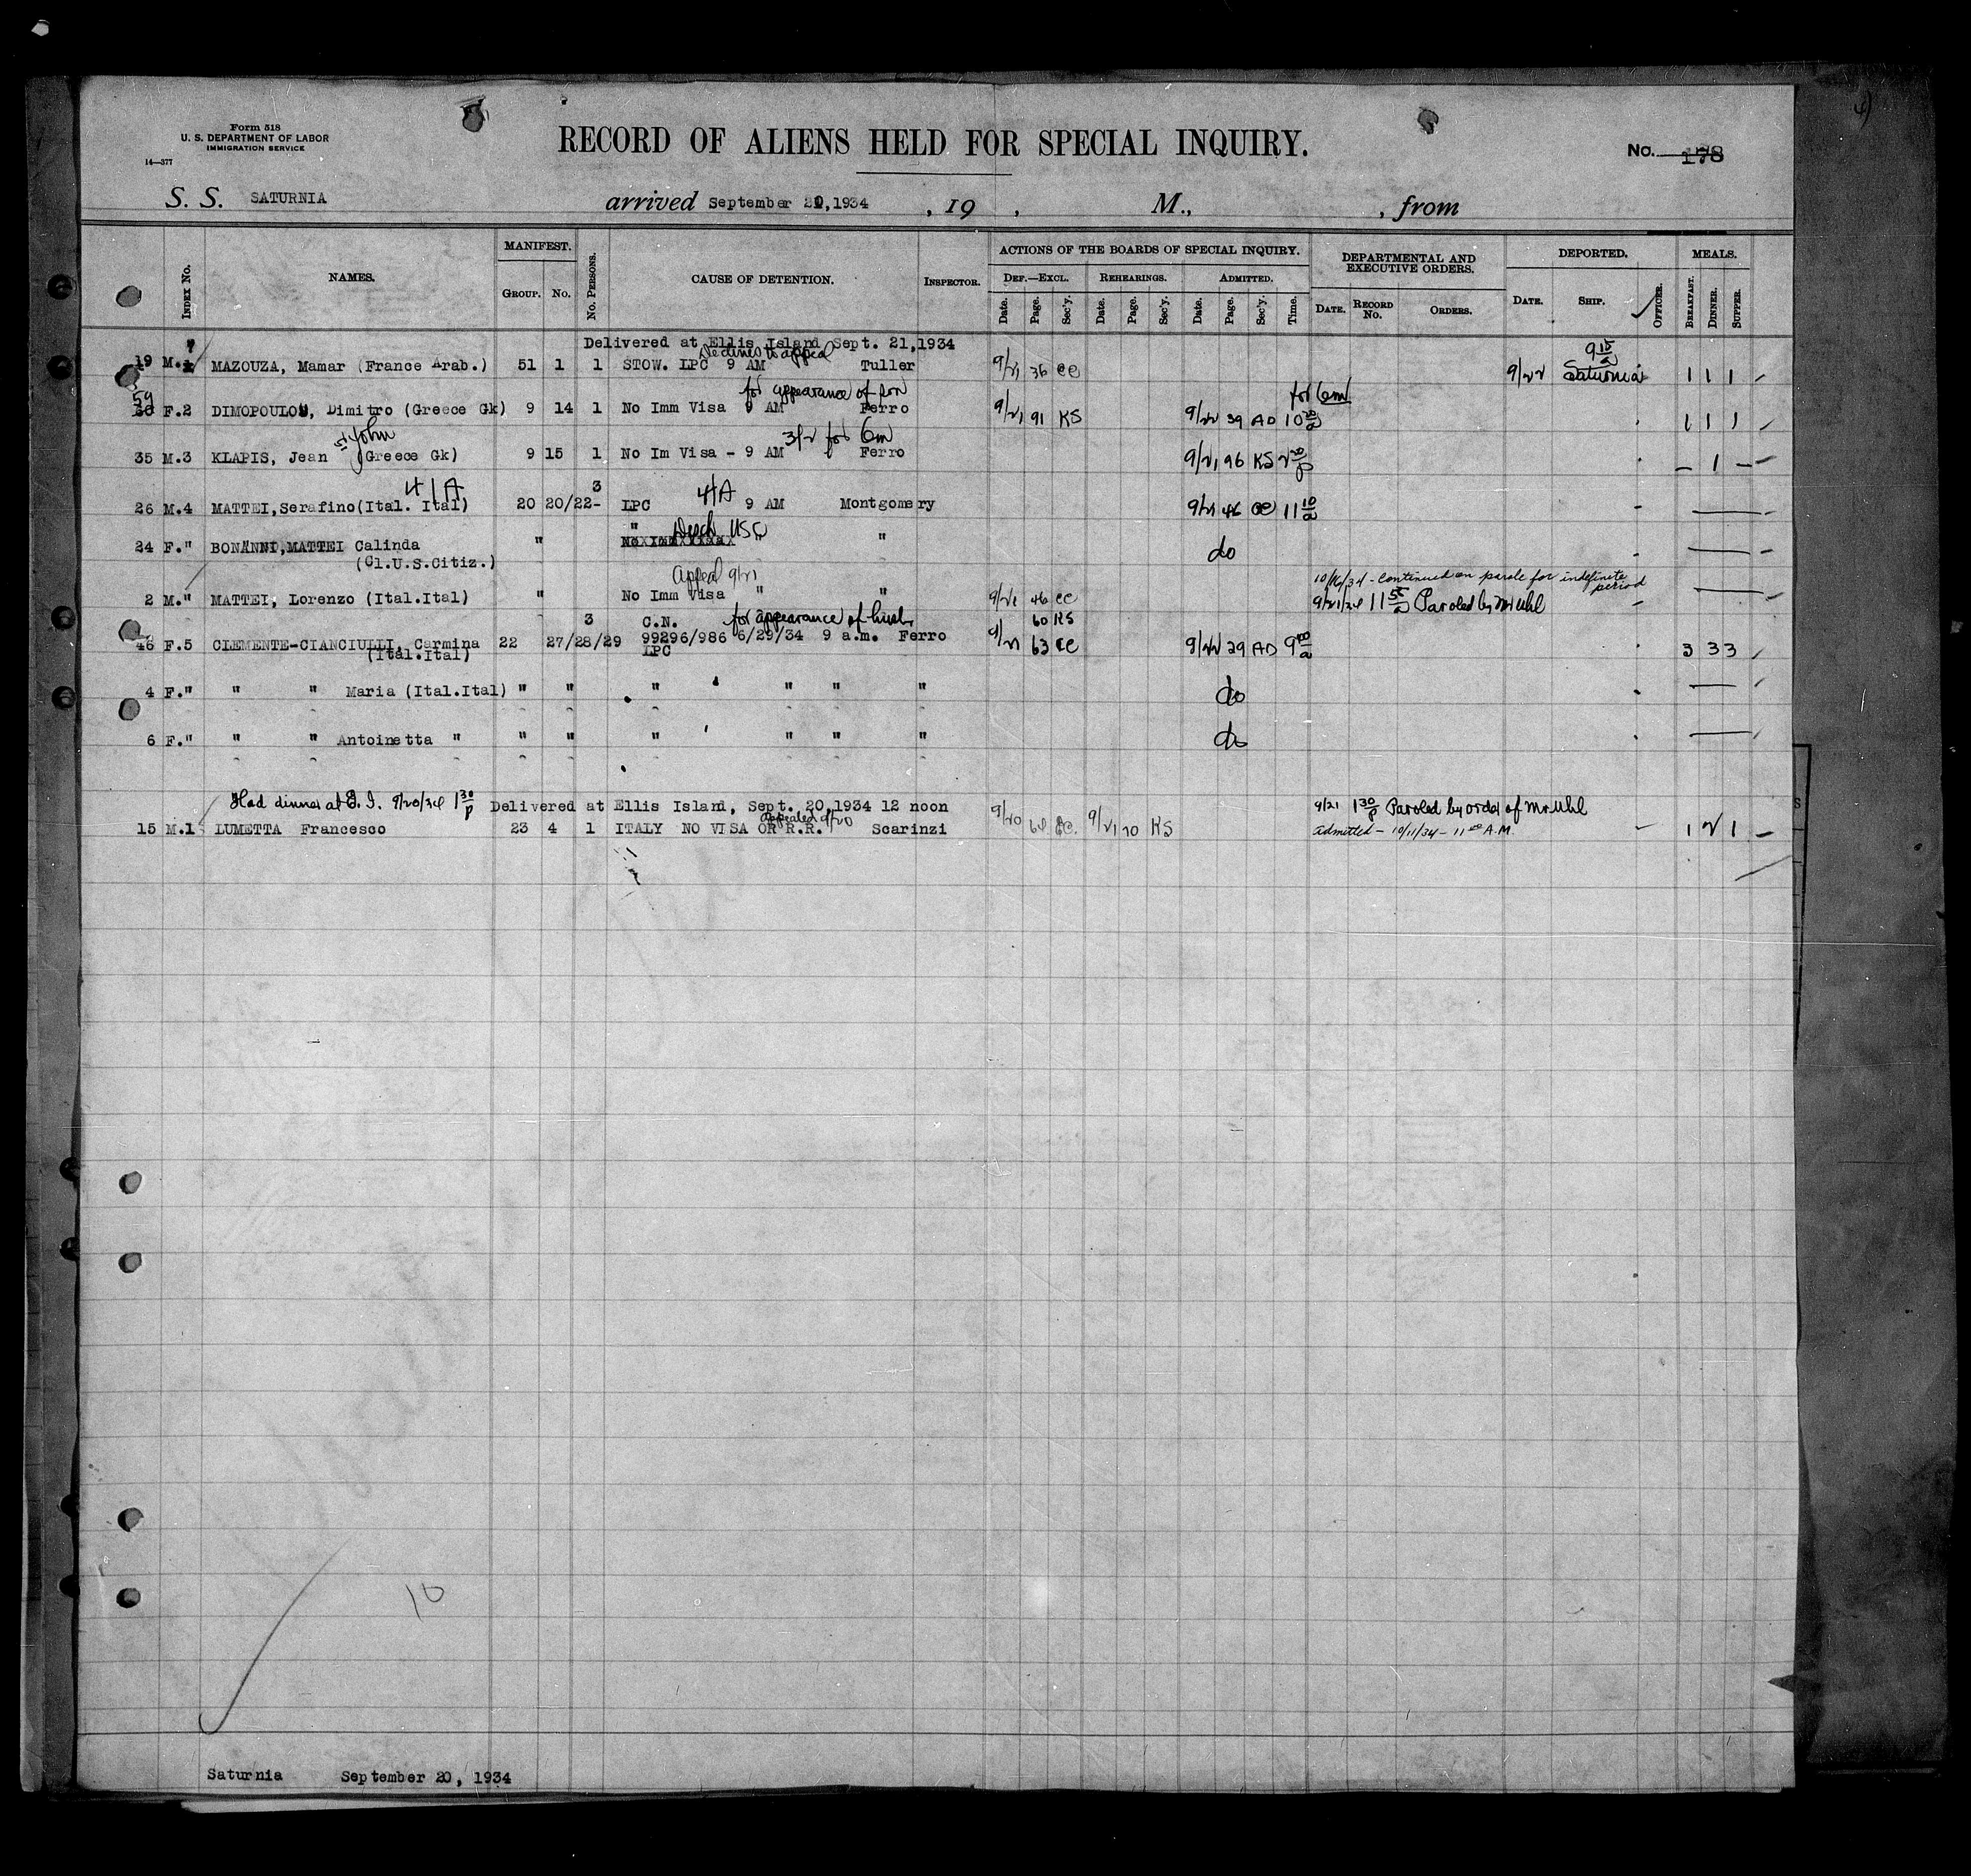 Form 518
U. S. DEPARTMENT OF LABOR
IMMIGRATION SERVICE
14—377
RECORD OF ALIENS HELD FOR SPECIAL INQUIRY.
No. 178
S. S. SATURNIA arrived September 20,1934 , 19 , M., , from
INDEX No. NAMES. MANIFEST. GROUP. No. No. PERSONS. CAUSE OF DETENTION. INSPECTOR. ACTIONS OF THE BOARDS OF SPECIAL INQUIRY. DEF.—EXCL. Date. Page. Sec'y. REHEARINGS. Date. Page. Sec'y. ADMITTED. Date. Page. Sec'y. Time. DEPARTMENTAL AND EXECUTIVE ORDERS. DATE. RECORD No. ORDERS. DEPORTED. DATE. SHIP. OFFICER. MEALS. BREAKFAST. DINNER. SUPPER.
Delivered at Ellis Island Sept. 21,1934
Declines to appeal 9 15/a
19 M.1 MAZOUZA, Mamar (France Arab.) 51 1 1 STOW. LPC 9 AM Tuller 9/21 36 CC 9/22 Saturnia 1 1 1
59 for appearance of son for 6m
F.2 DIMOPOULOS, Dimitro (Greece Gk) 9 14 1 No Imm Visa 9 AM Ferro 9/21 91 KS 9/22 39 AD 10 20/a 1 1 1
John 3/2 for 6m
35 M.3 KLAPIS, Jean (Greece Gk) 9 15 1 No Im Visa - 9 AM Ferro 9/21 96 KS 2 20/p — 1 —
4/A 3 4/A
26 M.4 MATTEI,Serafino(Ital. Ital) 20 20/22- LPC 9 AM Montgomery 9/21 46 CC 11 10/a
" USC
24 F." BONANNI,MATTEI Calinda " " " do
(Cl.U.S.Citiz.)
Appeal 9/21 10/16/34 - continued on parole for indefinite period
2 M." MATTEI, Lorenzo (Ital.Ital) " No Imm Visa " " 9/21 46 CC 9/21/34 11 55/a Paroled by Mr Uhl
3 C.N. for appearance of husb. 60 KS
46 F.5 CLEMENTE-CIANCIULLI, Carmina 22 27/28/29 99296/986 6/29/34 9 a.m. Ferro 9/21 63 CC 9/22 29 AD 9 20/a 3 3 3
(Ital.Ital) LPC
4 F." " " Maria (Ital.Ital) " " " " " " do
6 F." " " Antoinetta " " " " " " " do
Had dinner at E. I. 9/20/34 1 30/p Delivered at Ellis Island, Sept. 20,1934 12 noon 9/21 1 30/p Paroled by order of Mr Uhl
Appealed 9/20
15 M.1 LUMETTA Francesco 23 4 1 ITALY NO VISA OR R.R. Scarinzi 9/20 64 CC. 9/21 70 KS admitted - 10/11/34 - 11 00 A.M. 1 2 1
10
Saturnia September 20, 1934